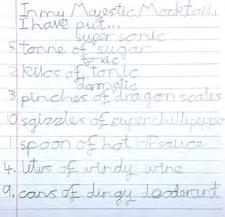 In my Majestic Mocktail
I have put...
super sonic
5 tonne of sugar
toxic
2 kilos of tonic
3 pinches of dragon scales
10 sgizzles of superchilli pepper
1 spoon of hot sauce
4. liters of windy wine
9. cans of dingy deoderant